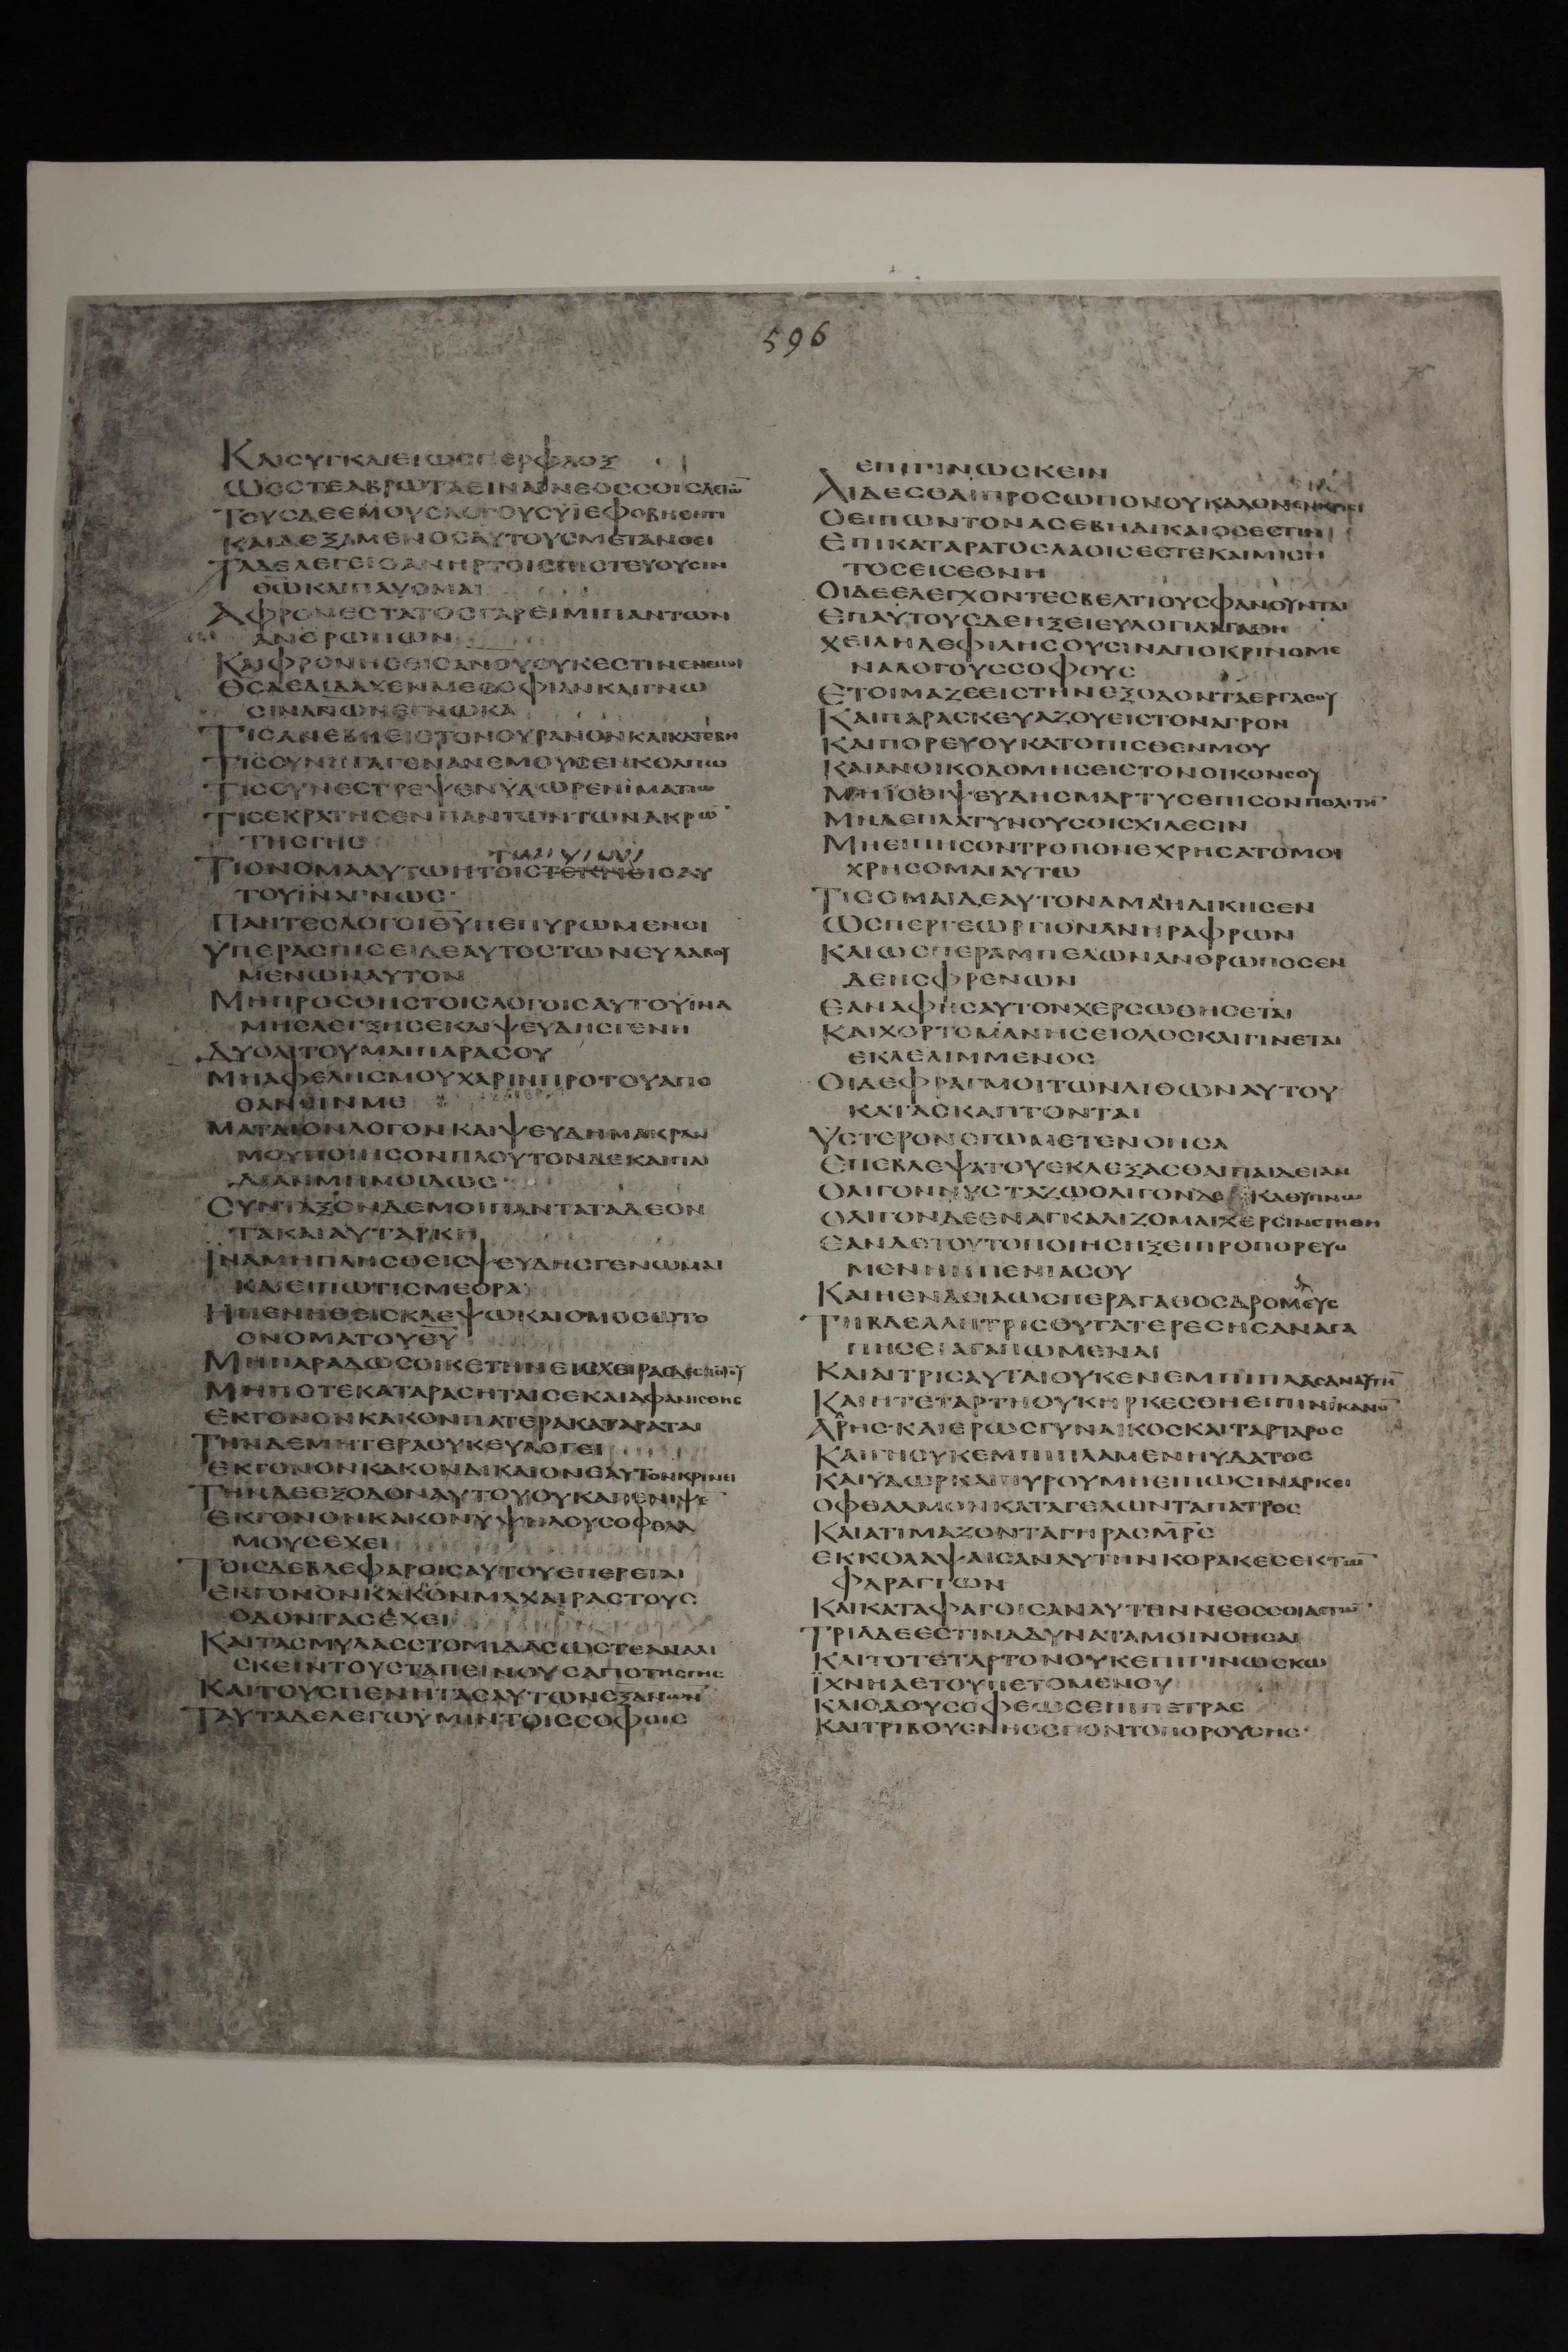 596
ΚΑΙϹΥΓΚΑΙΕΙΩϹΠΕΡΦΛΟΞ
ΩϹϹΤΕΑΒΡΩΤΑΕΙΝΑΙΝΕΟϹϹΟΙϹΑΕΤΩ̄
ΤΟΥϹΔΕΕΜΟΥϹΛΟΓΟΥϹΥΙΕΦΟΒΗΘΗΤΙ
ΚΑΙΔΕΞΑΜΕΝΟϹΑΥΤΟΥϹΜΕΤΑΝΟΕΙ
ΤΑΔΕΛΕΓΕΙΟΑΝΗΡΤΟΙϹΠΙϹΤΕΥΟΥϹΙΝ
Θ̄Ω̄ΚΑΙΠΑΥΟΜΑΙ
ΑΦΡΟΝΕϹΤΑΤΟϹΓΑΡΕΙΜΙΠΑΝΤΩΝ
ΑΝΘΡΩΠΩΝ
ΚΑΙΦΡΟΝΗϹΕΙϹΑΝΟΥΟΥΚΕϹΤΙΝΕΝΕΜΟΙ
ΘϹΔΕΔΙΔΑΧΕΝΜΕϹΟΦΙΑΝΚΑΙΓΝΩ
ϹΙΝΑΓΙΩΝΕΓΝΩΚΑ
ΤΙϹΑΝΕΒΗΕΙϹΤΟΝΟΥΡΑΝΟΝΚΑΙΚΑΤΕΒΗ
ΤΙϹϹΥΝΗΓΑΓΕΝΑΝΕΜΟΥϹΕΝΚΟΛΠΩ
ΤΙϹϹΥΝΕϹΤΡΕΨΕΝΥΔΩΡΕΝΙΜΑΤΙΩ
ΤΙϹΕΚΡΑΤΗϹΕΝΠΑΝΤΩΝΤΩΝΑΚΡΩ̄
ΤΗϹΓΗϹ
ΤΙΟΝΟΜΑΑΥΤΩΗΤΟΙϹΤΕΚΝΟΙϹΑΥ
ΤΟΥΙΝΑΓΝΩϹ
ΠΑΝΤΕϹΛΟΓΟΙΘ̄Ῡ̄ΠΕΠΥΡΩΜΕΝΟΙ
ΥΠΕΡΑϹΠΙϹΕΙΔΕΑΥΤΟϹΤΩΝΕΥΛΑΒΟΥ
ΜΕΝΩΝΑΥΤΟΝ
ΜΗΠΡΟϹΘΗϹΤΟΙϹΛΟΓΟΙϹΑΥΤΟΥΙΝΑ
ΜΗΕΛΕΓΞΗϹΕΚΑΙΨΕΥΔΗϹΓΕΝΗ
ΔΥΟΑΙΤΟΥΜΑΙΠΑΡΑϹΟΥ
ΜΗΑΦΕΛΗϹΜΟΥΧΑΡΙΝΠΡΟΤΟΥΑΠΟ
ΘΑΝΕΙΝΜΕ
ΜΑΤΑΙΟΝΛΟΓΟΝΚΑΙΨΕΥΔΗΜΑΚΡΑΝ
ΜΟΥΠΟΙΗϹΟΝΠΛΟΥΤΟΝΔΕΚΑΙΠΕ
ΜΗΜΟΙΔΩϹ
ϹΥΝΤΑΞΟΝΔΕΜΟΙΠΑΝΤΑΤΑΔΕΟΝ
ΤΑΚΑΙΑΥΤΑΡΚΗ
ΙΝΑΜΗΠΛΗϹΘΕΙϹΨΕΥΔΗϹΓΕΝΩΜΑΙ
ΚΑΙΕΙΠΩΤΙϹΜΕΟΡΑ
ΗΠΕΝΗΘΕΙϹΚΛΕΨΩΚΑΙΟΜΟϹΩΤΟ
ΟΝΟΜΑΤΟΥΘ̄Ῡ̄
ΜΗΠΑΡΑΔΩϹΟΙΚΕΤΗΝΕΙϹΧΕΙΡΑϹΔΕϹΠΟΤΟΥ
ΜΗΠΟΤΕΚΑΤΑΡΑϹΗΤΑΙϹΕΚΑΙΑΦΑΝΙϹΘΗϹ
ΕΚΓΟΝΟΝΚΑΚΟΝΠΑΤΕΡΑΚΑΤΑΡΑΤΑΙ
ΤΗΝΔΕΜΗΤΕΡΑΟΥΚΕΥΛΟΓΕΙ
ΕΚΓΟΝΟΝΚΑΚΟΝΔΙΚΑΙΟΝΕΑΥΤΟΝΚΡΙΝΕΙ
ΤΗΝΔΕΕΞΟΔΟΝΑΥΤΟΥΟΥΚΑΠΕΝΙΨΕ̄
ΕΚΓΟΝΟΝΚΑΚΟΝΥΨΗΛΟΥϹΟΦΘΑΛ
ΜΟΥϹΕΧΕΙ
ΤΟΙϹΔΕΒΛΕΦΑΡΟΙϹΑΥΤΟΥΕΠΕΡΕΤΑΙ
ΕΚΓΟΝΟΝΚΑΚΟΝΜΑΧΑΙΡΑϹΤΟΥϹ
ΟΔΟΝΤΑϹΕΧΕΙ
ΚΑΙΤΑϹΜΥΛΑϹϹΤΟΜΙΔΑϹΩϹΤΕΑΝΑΛΙ
ϹΚΕΙΝΤΟΥϹΤΑΠΕΙΝΟΥϹΑΠΟΤΗϹΓΗϹ
ΚΑΙΤΟΥϹΠΕΝΗΤΑϹΑΥΤΩΝΕΞΑΝΩΝ
ΤΑΥΤΑΔΕΛΕΓΩΥΜΙΝΤΟΙϹϹΟΦΟΙϹ
ΕΠΙΓΙΝΩϹΚΕΙΝ
ΑΙΔΕϹΘΑΙΠΡΟϹΩΠΟΝΟΥΚΑΛΟΝΕΝΚΡΙϹΕΙ
ΟΕΙΠΩΝΤΟΝΑϹΕΒΗΔΙΚΑΙΟϹΕϹΤΙΝ
ΕΠΙΚΑΤΑΡΑΤΟϹΛΑΟΙϹΕϹΤΕΚΑΙΜΙϹΗ
ΤΟϹΕΙϹΕΘΝΗ
ΟΙΔΕΕΛΕΓΧΟΝΤΕϹΒΕΛΤΙΟΥϹΦΑΝΟΥΝΤΑΙ
ΕΠΑΥΤΟΥϹΔΕΗΞΕΙΕΥΛΟΓΙΑΑΓΑΘΗ
ΧΕΙΛΗΔΕΦΙΛΗϹΟΥϹΙΝΑΠΟΚΡΙΝΟΜΕ
ΝΑΛΟΓΟΥϹϹΟΦΟΥϹ
ΕΤΟΙΜΑΖΕΕΙϹΤΗΝΕΞΟΔΟΝΤΑΕΡΓΑϹΟΥ
ΚΑΙΠΑΡΑϹΚΕΥΑΖΟΥΕΙϹΤΟΝΑΓΡΟΝ
ΚΑΙΠΟΡΕΥΟΥΚΑΤΟΠΙϹΘΕΝΜΟΥ
ΚΑΙΑΝΟΙΚΟΔΟΜΗϹΕΙϹΤΟΝΟΙΚΟΝϹΟΥ
ΜΗΙϹΘΙΨΕΥΔΗϹΜΑΡΤΥϹΕΠΙϹΟΝΠΟΛΙΤΗ̄
ΜΗΔΕΠΛΑΤΥΝΟΥϹΟΙϹΧΙΛΕϹΙΝ
ΜΗΕΙΠΗϹΟΝΤΡΟΠΟΝΕΧΡΗϹΑΤΟΜΟΙ
ΧΡΗϹΟΜΑΙΑΥΤΩ
ΤΙϹΟΜΑΙΔΕΑΥΤΟΝΑΜΑΗΔΙΚΗϹΕΝ
ΩϹΠΕΡΓΕΩΡΓΙΟΝΑΝΗΡΑΦΡΩΝ
ΚΑΙΩϹΠΕΡΑΜΠΕΛΩΝΑΝΘΡΩΠΟϹΕΝ
ΔΕΗϹΦΡΕΝΩΝ
ΕΑΝΑΦΗϹΑΥΤΟΝΧΕΡϹΩΘΗϹΕΤΑΙ
ΚΑΙΧΟΡΤΟΜΑΝΗϹΕΙΟΛΟϹΚΑΙΓΙΝΕΤΑΙ
ΕΚΛΕΛΙΜΜΕΝΟϹ
ΟΙΔΕΦΡΑΓΜΟΙΤΩΝΛΙΘΩΝΑΥΤΟΥ
ΚΑΤΑϹΚΑΠΤΟΝΤΑΙ
ΥϹΤΕΡΟΝΕΓΩΜΕΤΕΝΟΗϹΑ
ΕΠΕΒΛΕΨΑΤΟΥΕΚΛΕΞΑϹΘΑΙΠΑΙΔΕΙΑΝ
ΟΛΙΓΟΝΝΥϹΤΑΖΩΟΛΙΓΟΝΔΕΚΑΘΥΠΝΩ
ΟΛΙΓΟΝΔΕΕΝΑΓΚΑΛΙΖΟΜΑΙΧΕΡϹΙΝϹΤΗΘΗ
ΕΑΝΔΕΤΟΥΤΟΠΟΙΗϹΗΞΕΙΠΡΟΠΟΡΕΥΟ
ΜΕΝΗΗΠΕΝΙΑϹΟΥ
ΚΑΙΗΕΝΔΕΙΑΩϹΠΕΡΑΓΑΘΟϹΔΡΟΜΕΥϹ
ΤΗΒΔΕΛΛΗΤΡΙϹΘΥΓΑΤΕΡΕϹΗϹΑΝΑΓΑ
ΠΗϹΕΙΑΓΑΠΩΜΕΝΑΙ
ΚΑΙΑΙΤΡΙϹΑΥΤΑΙΟΥΚΕΝΕΜΠΙΠΛΑϹΑΝΑΥΤΗ̄
ΚΑΙΗΤΕΤΑΡΤΗΟΥΚΗΡΚΕϹΘΗΕΙΠΙΝΙΚΑΝΟ̄
ΑΔΗϹΚΑΙΕΡΩϹΓΥΝΑΙΚΟϹΚΑΙΤΑΡΤΑΡΟϹ
ΚΑΙΓΗΟΥΚΕΜΠΙΠΛΑΜΕΝΗΥΔΑΤΟϹ
ΚΑΙΥΔΩΡΚΑΙΠΥΡΟΥΜΗΕΙΠΩϹΙΝΑΡΚΕΙ
ΟΦΘΑΛΜΟΝΚΑΤΑΓΕΛΩΝΤΑΠΑΤΡΟϹ
ΚΑΙΑΤΙΜΑΖΟΝΤΑΓΗΡΑϹΜ̄Ρ̄Ϲ̄
ΕΚΚΟΛΑΨΑΙϹΑΝΑΥΤΗΝΚΟΡΑΚΕϹΕΚΤΩ̄
ΦΑΡΑΓΓΩΝ
ΚΑΙΚΑΤΑΦΑΓΟΙϹΑΝΑΥΤΗΝΝΕΟϹϹΟΙΑΕΤΩ̄
ΤΡΙΑΔΕΕϹΤΙΝΑΔΥΝΑΤΑΜΟΙΝΟΗϹΑΙ
ΚΑΙΤΟΤΕΤΑΡΤΟΝΟΥΚΕΠΙΓΙΝΩϹΚΩ
ΙΧΝΗΑΕΤΟΥΠΕΤΟΜΕΝΟΥ
ΚΑΙΟΔΟΥϹΟΦΕΩϹΕΠΙΠΕΤΡΑϹ
ΚΑΙΤΡΙΒΟΥϹΝΗΟϹΠΟΝΤΟΠΟΡΟΥϹΗϹ